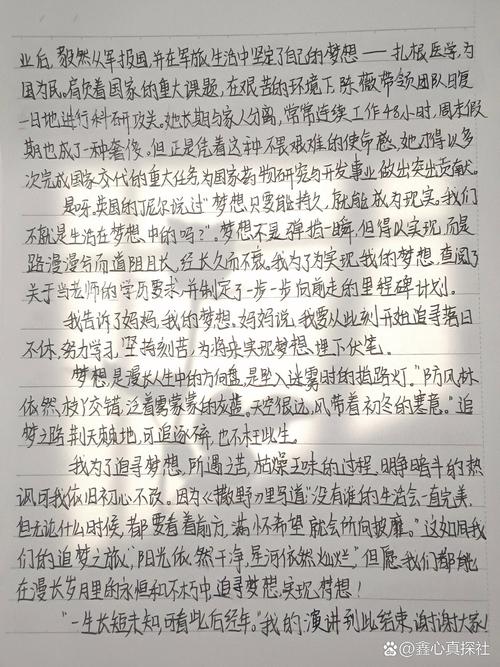 业后,毅然从军报国,并在军旅生活中坚定了自己的梦想——扎根医学,为
国为民。肩负着国家的重大课题,在艰苦的环境下,陈薇带领团队日复
一日地进行科研攻关。她长期与家人分离,常常连续工作48小时,周末假
期也成了一种奢侈。但正是凭着这种不畏艰难的使命感,她才得以多
次完成国家交代的重大任务为国家药物研究与开发事业做出突出贡献。
是呀。英国的丁尼尔说过"梦想只要能持久,就能成为现实。我们
不就是生活在梦想中的吗?"。梦想不是弹指一瞬,但得以实现,而是
路漫漫兮而道阻且长,经长久而不衰。我为了为实现我的梦想,查阅了
关于当老师的学历要求,并制定了一步一步向前走的里程碑计划。
我告诉了妈妈,我的梦想。妈妈说,我要从此刻开始追寻落日
不休,努力学习,坚持刻苦,为将来实现梦想,埋下伏笔。
梦想,是漫长人生中的方向盘,是坠入迷雾时的指路灯。"防风林
依然,枝丫交错,泛着雾蒙蒙的灰蓝。天空很远,风带着初冬的寒意。"追
梦之路,荆天棘地,可追逐碎,也不枉此生。
我为了追寻梦想,所遇之苦,枯燥乏味的过程,明挣暗斗的热
讽,可我依旧初心不改。因为《撒野》里写道"没有谁的生活会一直完美,
但无论什么时候,都要看着前方,满怀希望就会所向披靡。"这如同我
们的追梦之旅,"阳光依然干净,星河依然灿烂。"但愿我们都能
在漫长岁月里的永恒和不朽中,追寻梦想,实现梦想!
"一生长短未知,可看此后经年。"我的演讲到此结束,谢谢大家!
@鑫心真探社